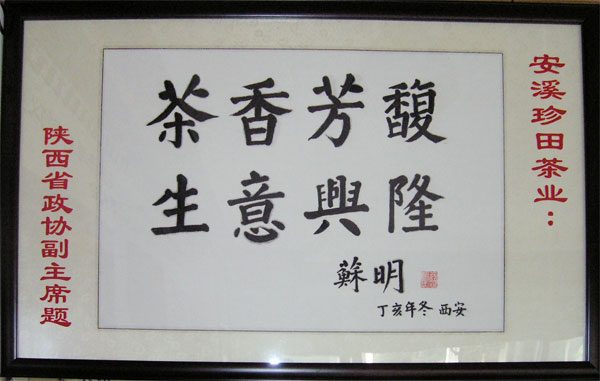 安溪珍田茶业：
茶香芳馥
生意興隆
蘇明
丁亥年冬 西安
陕西省政协副主席题